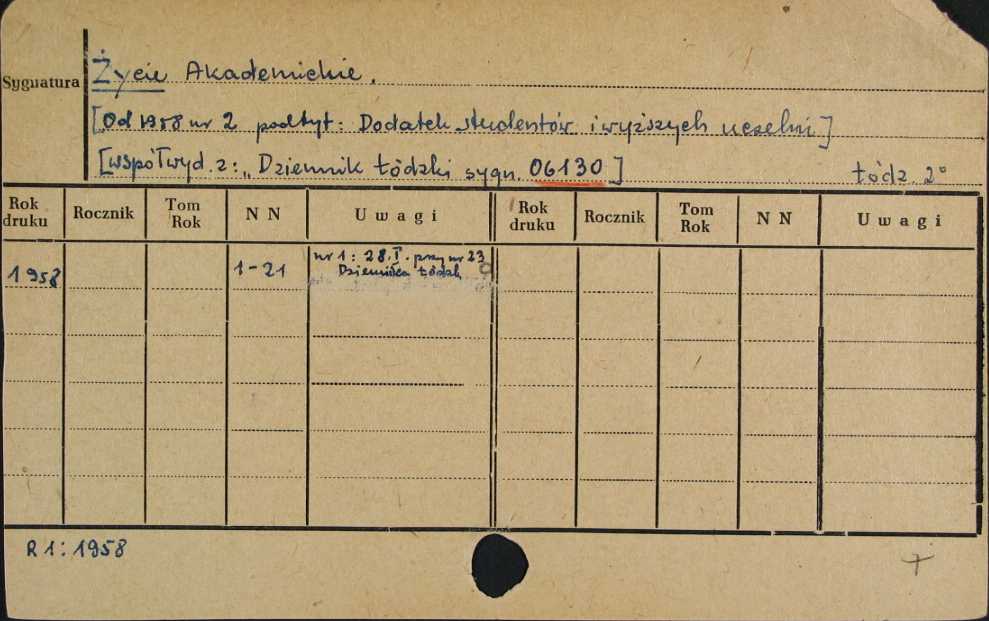 Sygnatura Życie Akademickie.
[Od 1958 nr 2 podtyt: Dodatek studentów i wyższych uczelni]
[współwyd. z: „Dziennik Łódzki sygn. 06130] Łódź. 2°
Rok druku Rocznik Tom Rok NN Uwagi Rok druku Rocznik Tom Rok NN Uwagi
1958 1-21 nr 1: 28.I. przy nr 23
Dziennika Łódzk
R 1: 1958